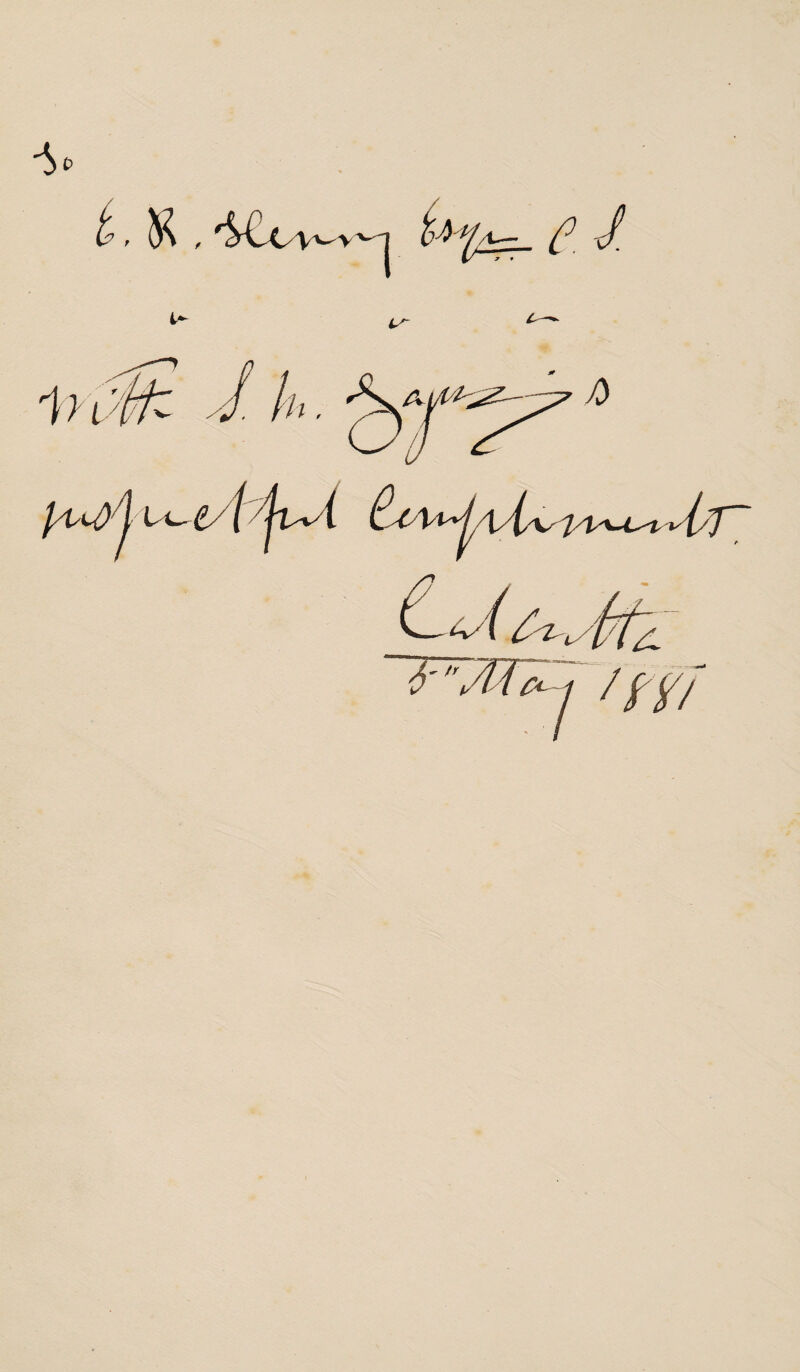 To
E. R. Henry Esqr. C.S.
with S. M. Tagore's
respectful Compliments.
Calcutta
5" May 1881